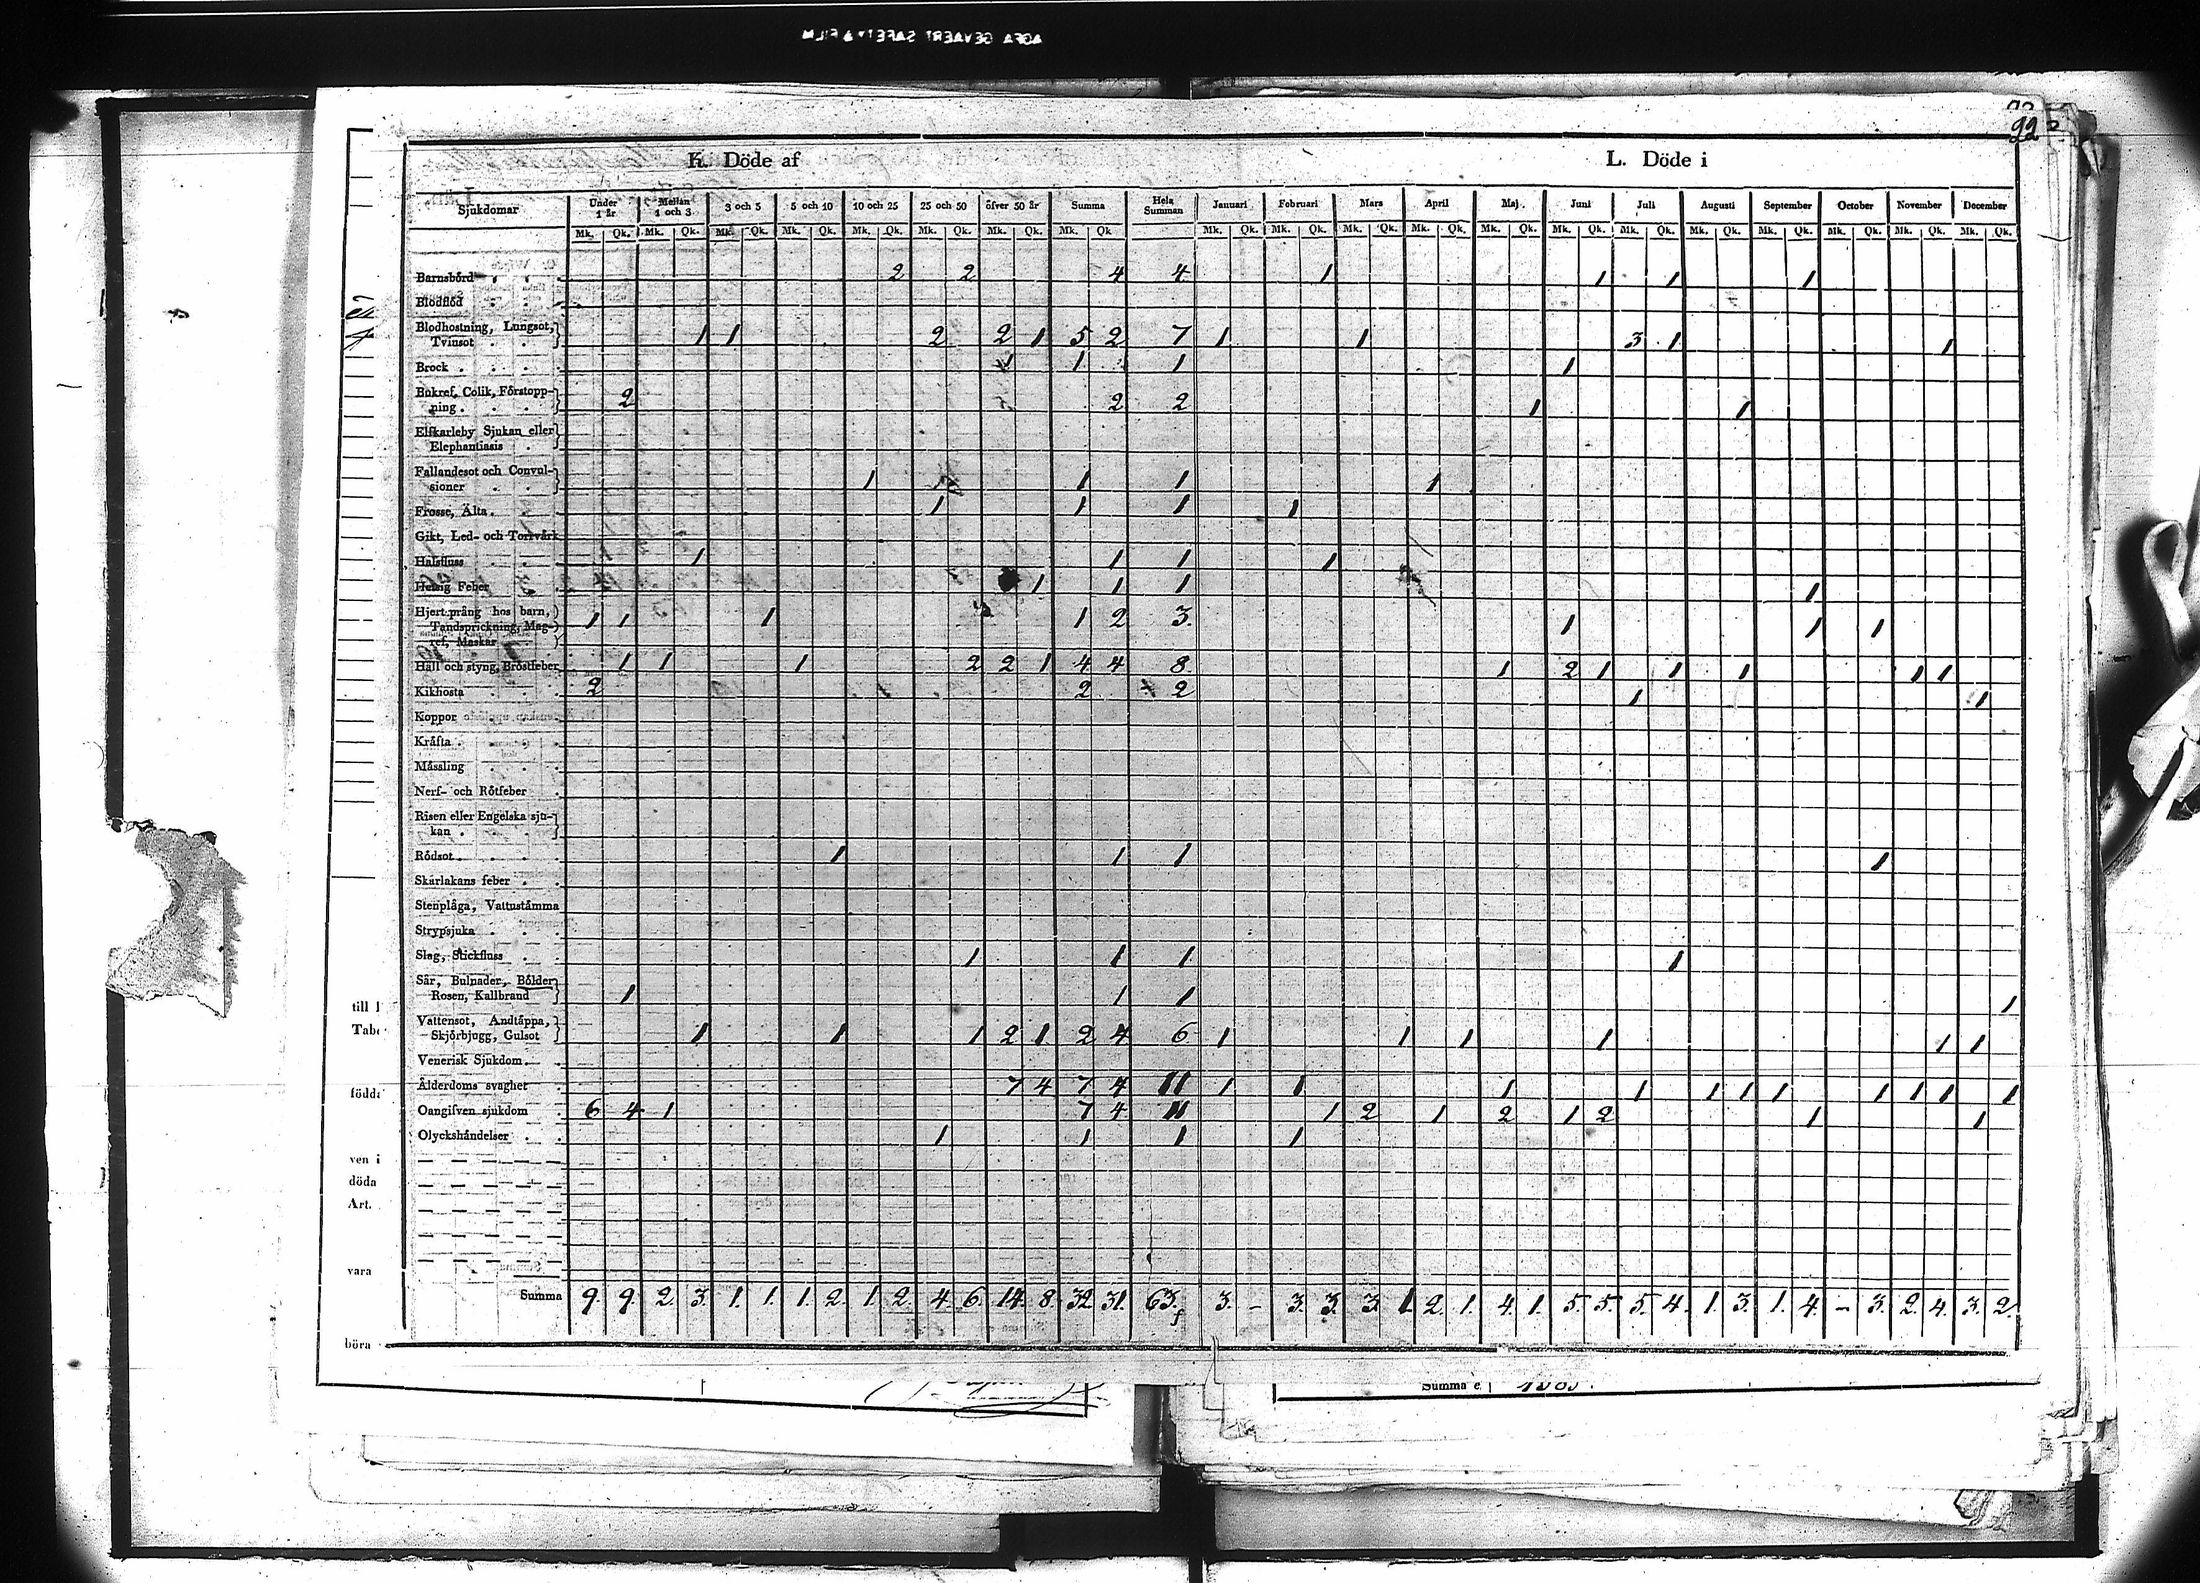 AGFA GEVAERT SAFETY FILM
22
K. Döde af L. Döde i
Sjukdomar Under 1 år Mellan 1 och 3 3 och 5 5 och 10 10 och 25 25 och 50 öfver 50 år Summa Hela Summan Januari Februari Mars April Maj Juni Juli Augusti September October November December
Mk. Qk. Mk. Qk. Mk. Qk. Mk. Qk. Mk. Qk. Mk. Qk. Mk. Qk. Mk. Qk Mk. Qk. Mk. Qk. Mk. Qk. Mk. Qk. Mk. Qk. Mk. Qk. Mk. Qk. Mk. Qk. Mk. Qk. Mk. Qk. Mk. Qk. Mk. Qk.
Barnsbörd 2 2 4 4 1 1 1 1
Blodflöd
Blodhostning, Lungsot,
Tvinsot 1 1 2 2 1 5 2 7 1 1 3 1 1
Brock 1 1 1 1
Bukref, Colik, Förstopp-
ning 2 2 2 1 1
Elfkarleby Sjukan eller
Elephantiasis
Fallandesot och Convul-
sioner 1 1 1 1
Frosse, Älta 1 1 1 1
Gikt, Led- och Torrvärk
Halsfluss 1 1 1 1
Hetsig Feber 1 1 1 1
Hjertsprång hos barn,
Tandsprickning, Mag-
ref, Maskar 1 1 1 1 2 3 1 1 1
Håll och styng, Bröstfeber 1 1 1 2 2 1 4 4 8 1 2 1 1 1 1 1
Kikhosta 2 2 2 1 1
Koppor
Kräfta
Mässling
Nerf- och Rötfeber
Risen eller Engelska sju-
kan
Rödsot 1 1 1 1
Skarlakans feber
Stenplåga, Vattustämma
Strypsjuka
Slag, Stickfluss 1 1 1 1
Sår, Bulnader, Bölder
Rosen, Kallbrand 1 1 1 1
Vattensot, Andtäppa,
Skjörbjugg, Gulsot 1 1 1 2 1 2 4 6 1 1 1 1 1 1
Venerisk Sjukdom
Ålderdoms svaghet 7 4 7 4 11 1 1 1 1 1 1 1 1 1 1 1
Oangifven sjukdom 6 4 1 7 4 11 1 2 1 2 1 2 1 1
Olyckshändelser 1 1 1 1
Summa 9. 9. 2. 3. 1. 1. 1. 2. 1. 2. 4. 6. 14. 8. 32 31. 63. 3. - 3. 3. 3. 1. 2. 1. 4. 1. 5. 5. 5. 4. 1. 3. 1. 4. - 3. 2. 4. 3. 2.
till
född
ven i
döda
Art.
vara
böra
Summa